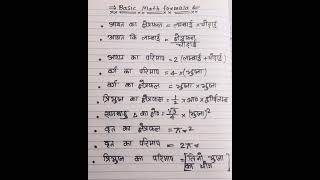 ⇒ Basic Math formula ⇐
• आयत का क्षेत्रफल = लम्बाई × चौड़ाई
• आयत कि लम्बाई = क्षेत्रफल / चौड़ाई
• आयत का परिमाप = 2 (लम्बाई + चौड़ाई)
• वर्ग का परिमाप = 4 × (भुजा)
• वर्ग का क्षेत्रफल = भुजा × भुजा
• त्रिभुज का क्षेत्रफल = 1/2 × आ० × शीर्षलम्ब
• समबाहु Δ का क्षे० = √3/4 × (भुजा)²
• वृत का क्षेत्रफल = πr²
• वृत का परिमाप = 2πr
• त्रिभुज का परिमाप = [तिनों भुजा का योग]